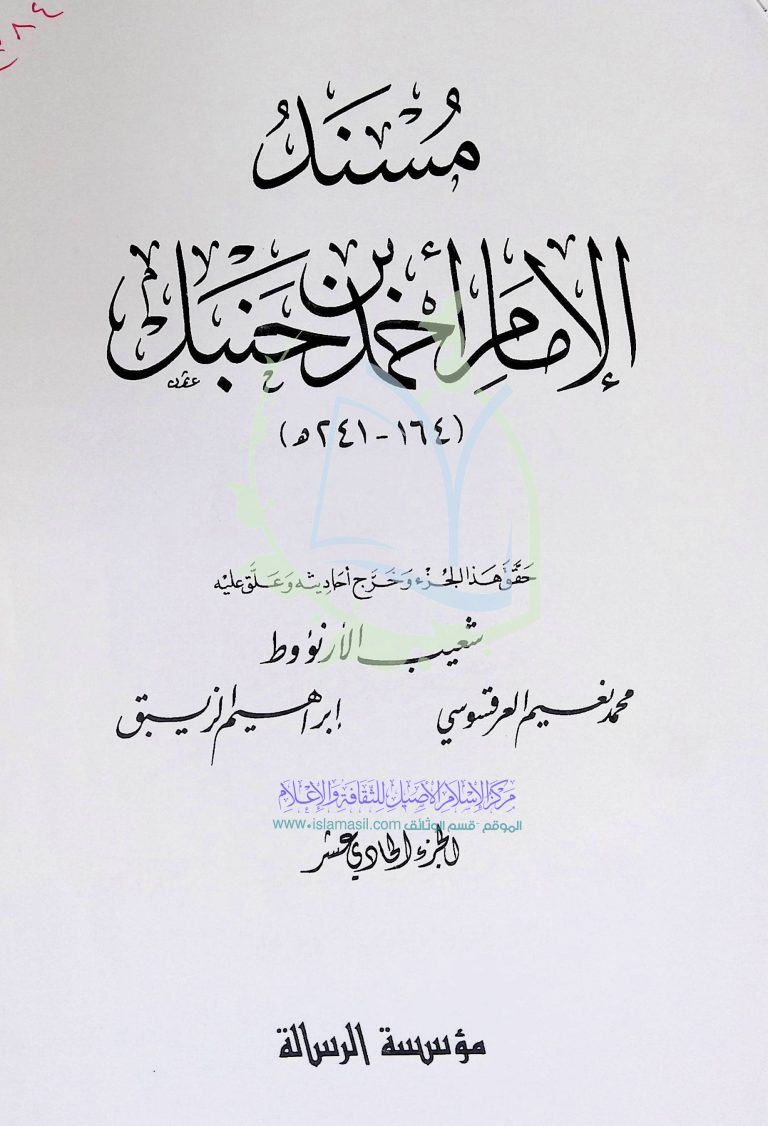 ٤٨٤
مُسْنَدُ
الإمَامِ أَحْمَدَ بْنِ حَنْبَل
(١٦٤ - ٢٤١ هـ)
حَقَّقَ هَذَا الجُزْء وَخَرَّجَ أَحَادِيثه وَعَلَّقَ عليْه
شعيب الأرنؤوط
محمد نعيم العرقسوسي    إبراهيم الزيبق
مركز الإسلام الأصيل للثقافة والإعلام
الموقع - قسم الوثائق www.islamasil.com
الجزء الحادي عشر
مؤسسة الرسالة